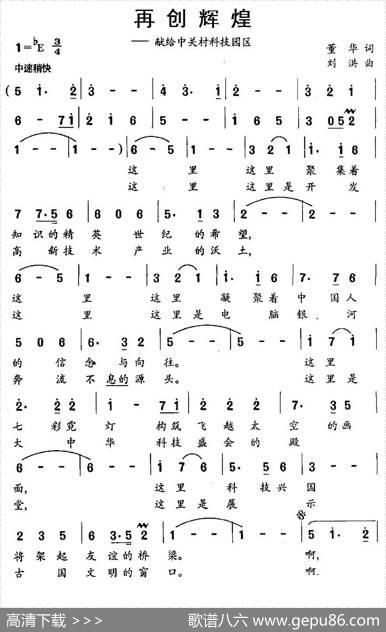 再创辉煌
1=♭E 3/4
—— 献给中关村科技园区
董华 词
刘洪 曲
中速稍快
( 5 1· 2 | 3 - - | 4 3· 1 | 2 - - | 3 2 1 |
6 - 7 1 | 2 1 6 | 5 - - | 5 6 5 | 3 0 5 2 |
1 - - | 1 - - ) | 6 - 5 | 1 - - | 3 2 1 | 1· 3 5 |
这 里 这 里 聚 集着
这 里 这 里 是 开 发
7 7·5 6 | 6 0 6 | 5· 1 3 | 2 - - | 2 - - |
知 识的 精 英 世 纪 的 希 望,
高 新技 术 产 业 的 沃 土,
6 - 5 | 1 - - | 3 2 3 | 1· 1 6 | 7· 7 6 |
这 里 这 里 凝 聚着 中 国人
这 里 这 里 是 电 脑 银 河
5 0 6 | 6· 3 2 | 5 - - | 5 - - | 1 7 1 |
的 信 念 与向 往。 这 里
奔 流 不 息的源 头。 这里 是
2· 2 2 | 1 - 7 1 | 2 2 2 | 7· 3 5 |
七 彩 霓 灯 构 筑 飞 越 太 空 的画
大 中 华 科 技 盛 会 的 殿
6 - - | 6 - - | 1 7 1 | 3· 3 3 1 |
面, 这 里 科 技 兴 国
堂, 这 里 是 展 示
2 3 5 | 6 3·5 2 | 1 - - | 1 - - | 5 1· 2 |
将 架 起 友 谊的 桥 梁。 啊,
古 国 文 明的 窗 口。 啊.
高清下载 >>>
歌谱八六 www.gepu86.com